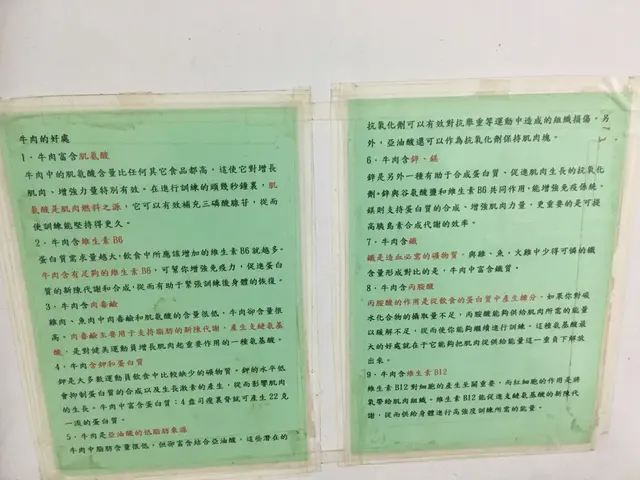 牛肉的好處
1、牛肉富含肌氨酸
牛肉中的肌氨酸含量比任何其它食品都高，這使它對增長
肌肉、增強力量特別有效。在進行訓練的頭幾秒鐘裏，肌
氨酸是肌肉燃料之源，它可以有效補充三磷酸腺苷，從而
使訓練能堅持得更久。
2、牛肉含維生素B6
蛋白質需求量越大，飲食中所應該增加的維生素B6就越多。
牛肉含有足夠的維生素B6，可幫你增強免疫力，促進蛋白
質的新陳代謝和合成，從而有助于緊張訓練後身體的恢復。
3、牛肉含肉毒鹼
雞肉、魚肉中肉毒鹼和肌氨酸的含量很低，牛肉卻含量很
高。肉毒鹼主要用于支持脂肪的新陳代謝，產生支鏈氨基
酸，是對健美運動員增長肌肉起重要作用的一種氨基酸。
4、牛肉含鉀和蛋白質
鉀是大多數運動員飲食中比較缺少的礦物質。鉀的水平低
會抑制蛋白質的合成以及生長激素的產生，從而影響肌肉
的生長。牛肉中富含蛋白質：4盎司瘦里脊就可產生22克
一流的蛋白質。
5、牛肉是亞油酸的低脂肪來源
牛肉中脂肪含量很低，但卻富含結合亞油酸，這些潛在的
抗氧化劑可以有效對抗舉重等運動中造成的組織損傷。另
外，亞油酸還可以作為抗氧化劑保持肌肉塊。
6、牛肉含鋅、鎂
鋅是另外一種有助于合成蛋白質、促進肌肉生長的抗氧化
劑。鋅與谷氨酸鹽和維生素B6共同作用，能增強免疫係統。
鎂則支持蛋白質的合成、增強肌肉力量，更重要的是可提
高胰島素合成代謝的效率。
7、牛肉含鐵
鐵是造血必需的礦物質。與雞、魚、火雞中少得可憐的鐵
含量形成對比的是，牛肉中富含鐵質。
8、牛肉含丙胺酸
丙胺酸的作用是從飲食的蛋白質中產生糖分。如果你對碳
水化合物的攝取量不足，丙胺酸能夠供給肌肉所需的能量
以緩解不足，從而使你能夠繼續進行訓練。這種氨基酸最
大的好處就在于它能夠把肌肉從供給能量這一重負下解放
出來。
9、牛肉含維生素B12
維生素B12對細胞的產生至關重要，而紅細胞的作用是將
氧帶給肌肉組織。維生素B12能促進支鏈氨基酸的新陳代
謝，從而供給身體進行高強度訓練所需的能量。